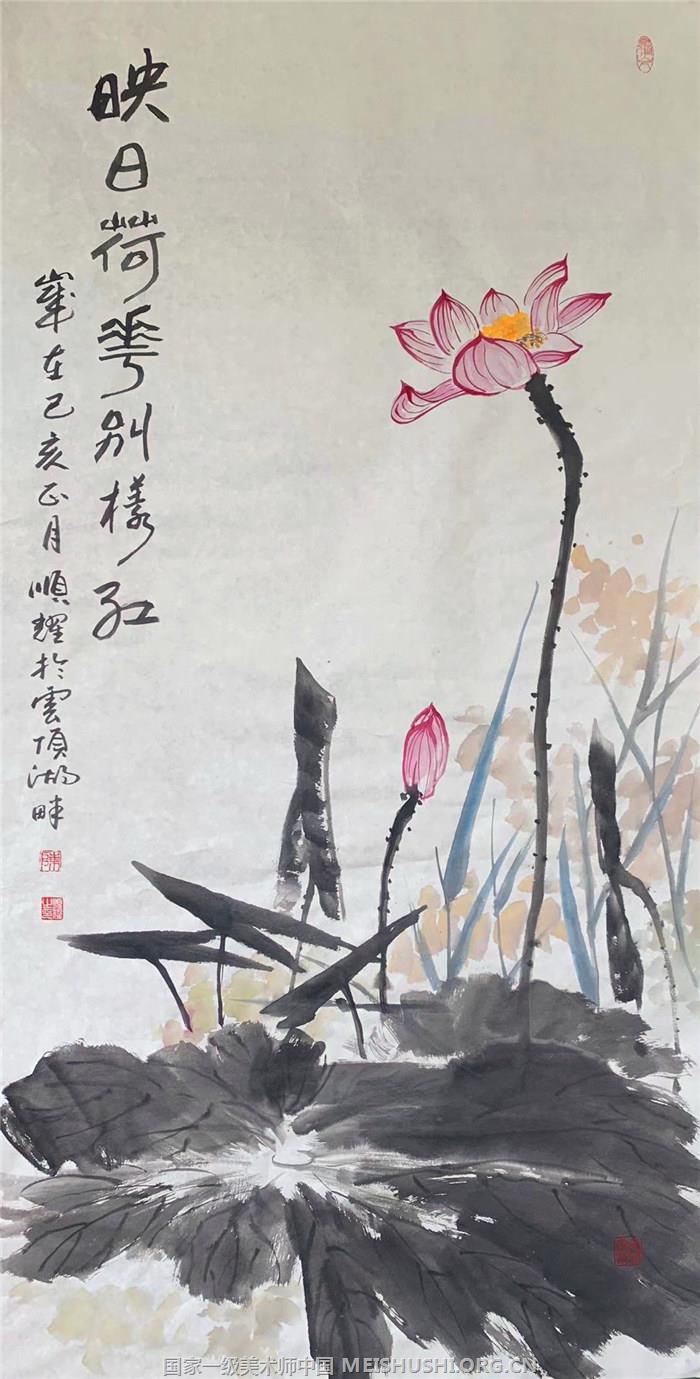 映日荷花别樣红
歲在己亥正月順耀於雲頂湖畔
国家一级美术师中国 MEISHUSHI.ORG.CN